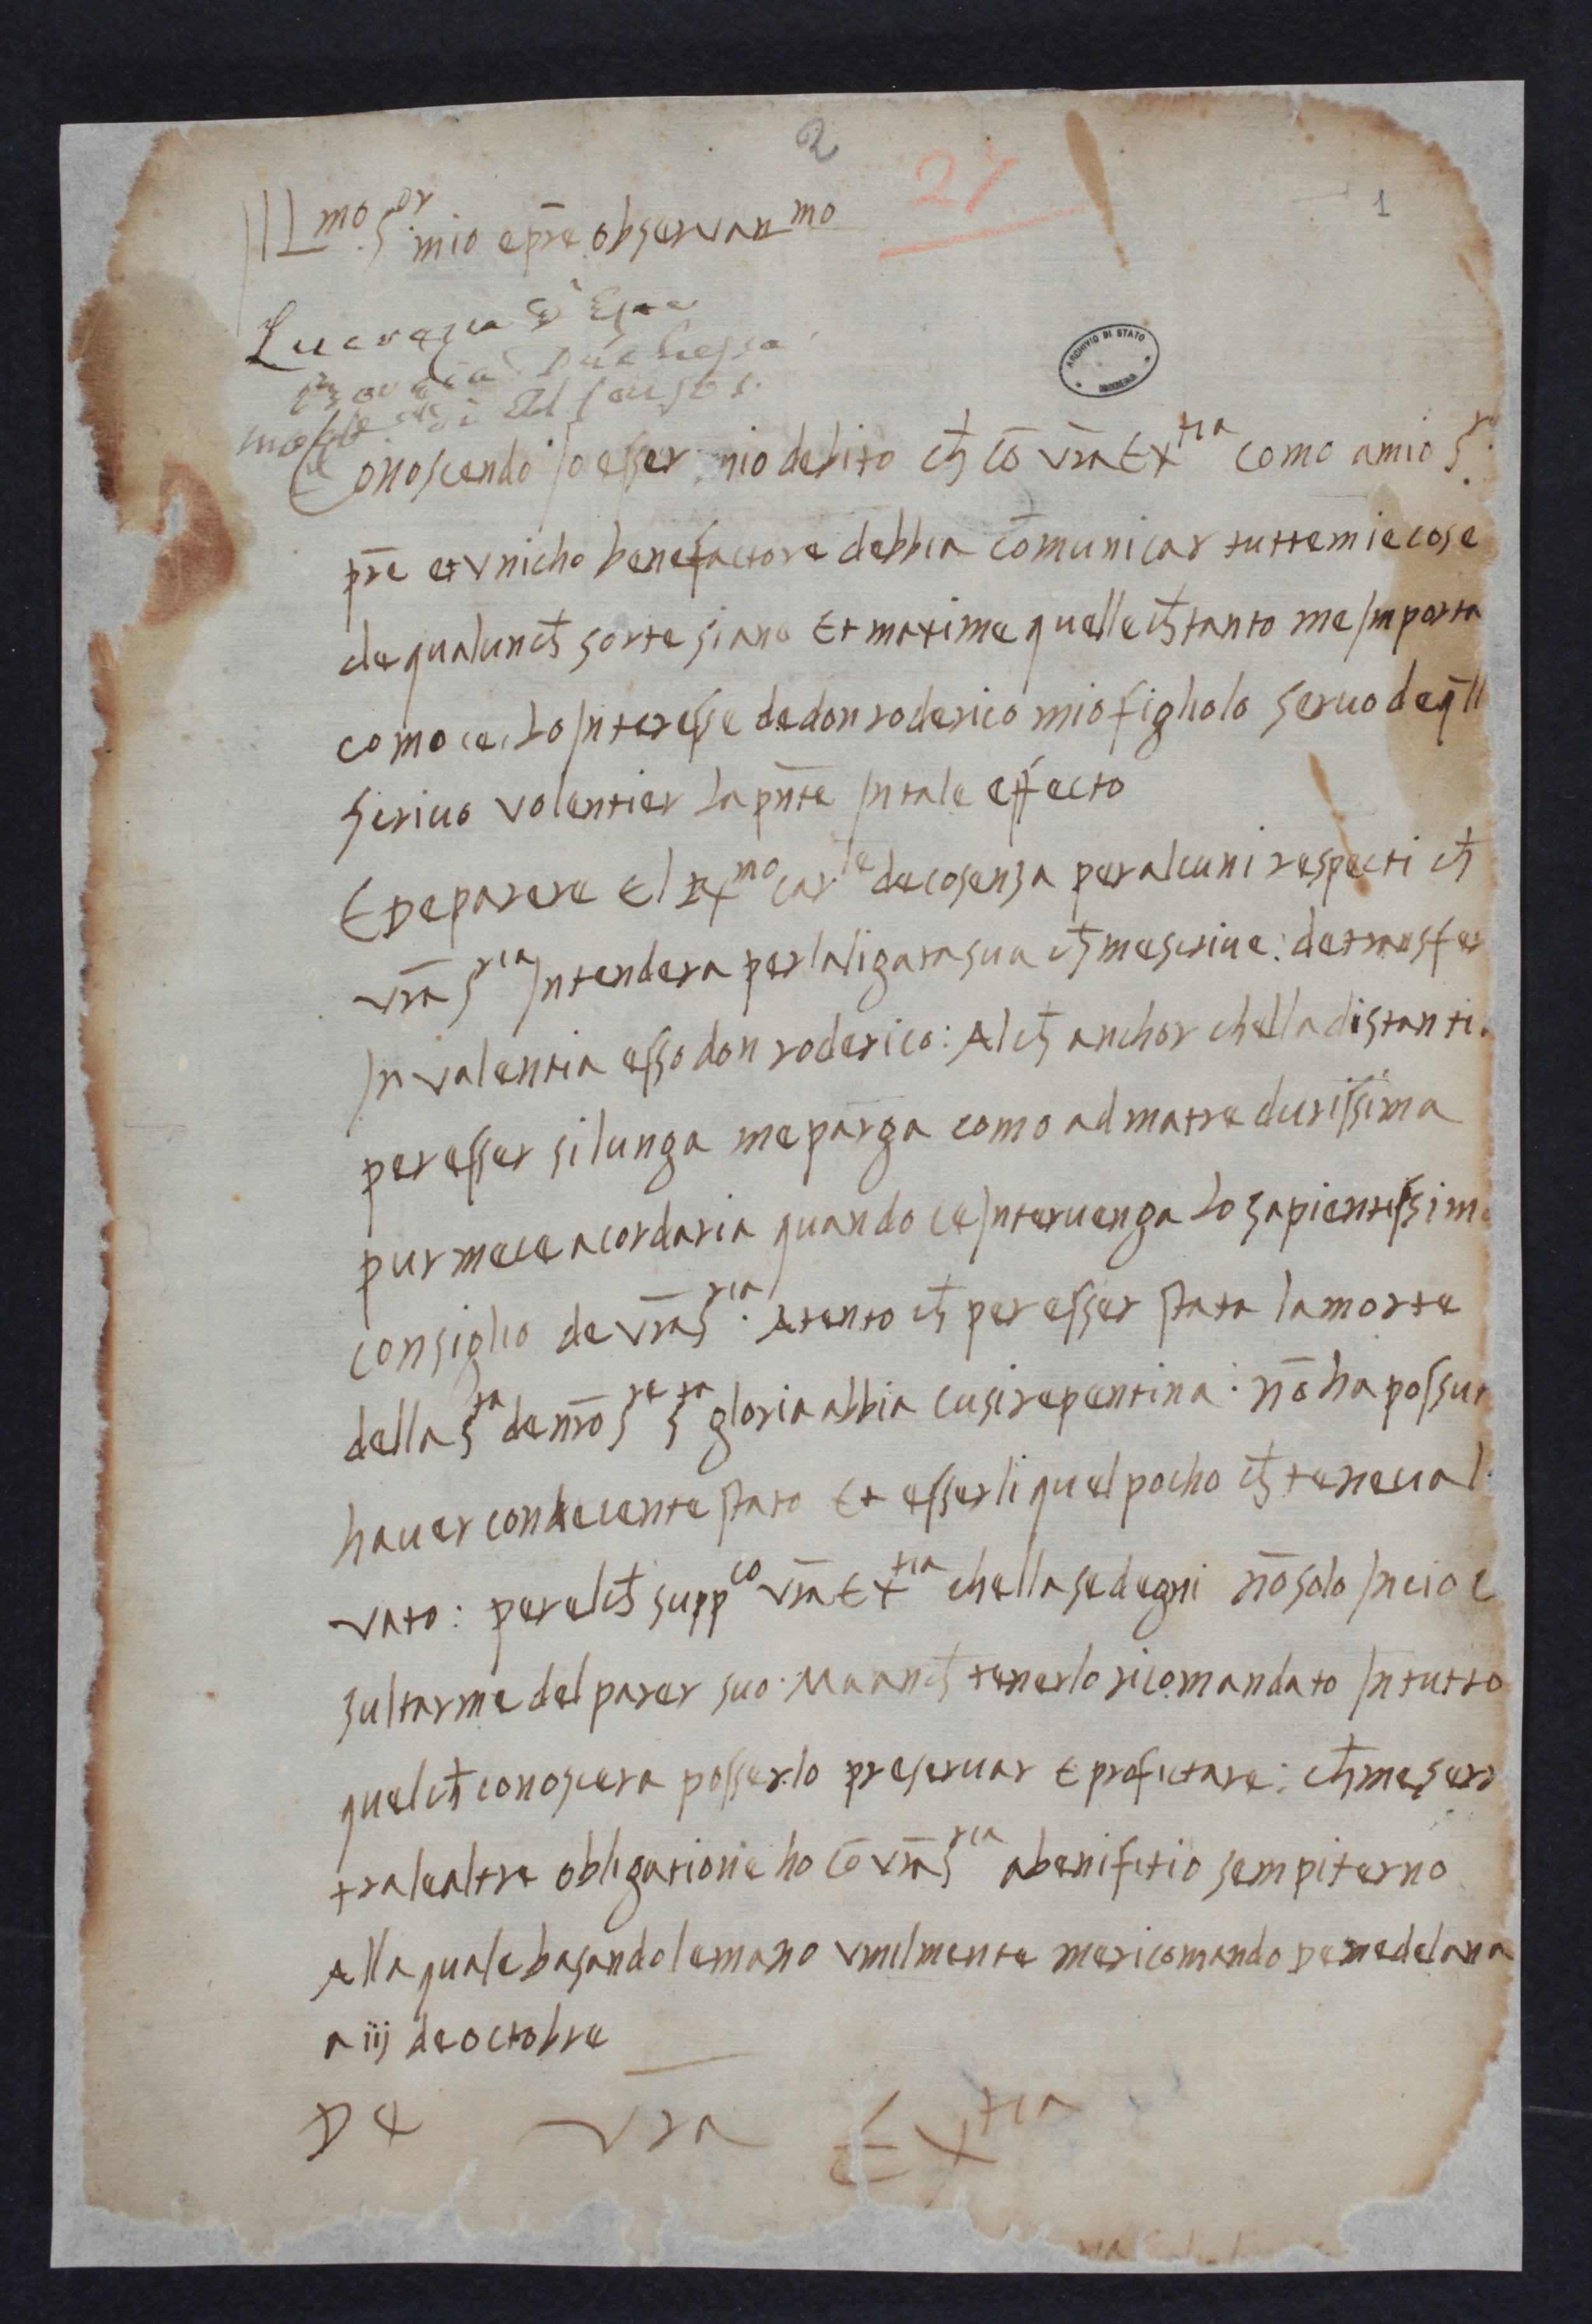 2
27
1
Illmo Sor mio e p̄re observanmo
Lucrezia d'Este
Duchessa
moglie di Alfonso I.
ARCHIVIO DI STATO
MODENA
Conoscendo Io esser mio debito ch̄ cō vr̄a Extia como a mio Sr.
pr̄e et vnicho benefactore debbia cōmunicar tutte mie cose
de qualunch̄ sorte siano Et maxime quelle ch̄ tanto me Importa
como ce lo Interesse de don roderico mio figholo servo de q̄ll
scriuo volentier la pn̄te In tale effecto
E De parere El Rmo carle de cosenza per alcuni respecti ch̄
vr̄a Sria Intendera per la ligata sua ch̄ me scriue: de transfer
In valentia esso don roderico: Al ch̄ anchor chella distanti
per esser si lunga me parga como ad matre durissima
pur me ce acordaria quando ce Interuenga lo sapientissimo
consiglio de vr̄a Sria. Atento ch̄ per esser stata la morte
della Sta de nr̄o Sre Sta gloria abbia cusi repentina: nō ha possut
hauer condecente stato Et esserli quel pocho ch̄ teneua l
vato: per el ch̄ suppco vr̄a Extia chella se degni nō solo In cio c
sultarme del parer suo: Ma anch̄ tenerlo ricomandato In tutto
quel ch̄ conoscera posserlo preseruar E profictare: ch̄ me serr
tra le altre obligatione ho cō vr̄a Sria a benifitio sempiterno
Alla quale basando le mano vmilmente me ricomando De medelana
a iij de octobre
De vr̄a Extia